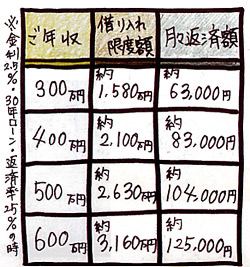 ご年収 借り入れ限度額 月々返済額
300万円 約1,580万円 約63,000円
400万円 約2,100万円 約83,000円
500万円 約2,630万円 約104,000円
600万円 約3,160万円 約125,000円
※金利2.5%・30年ローン・返済率25%の時